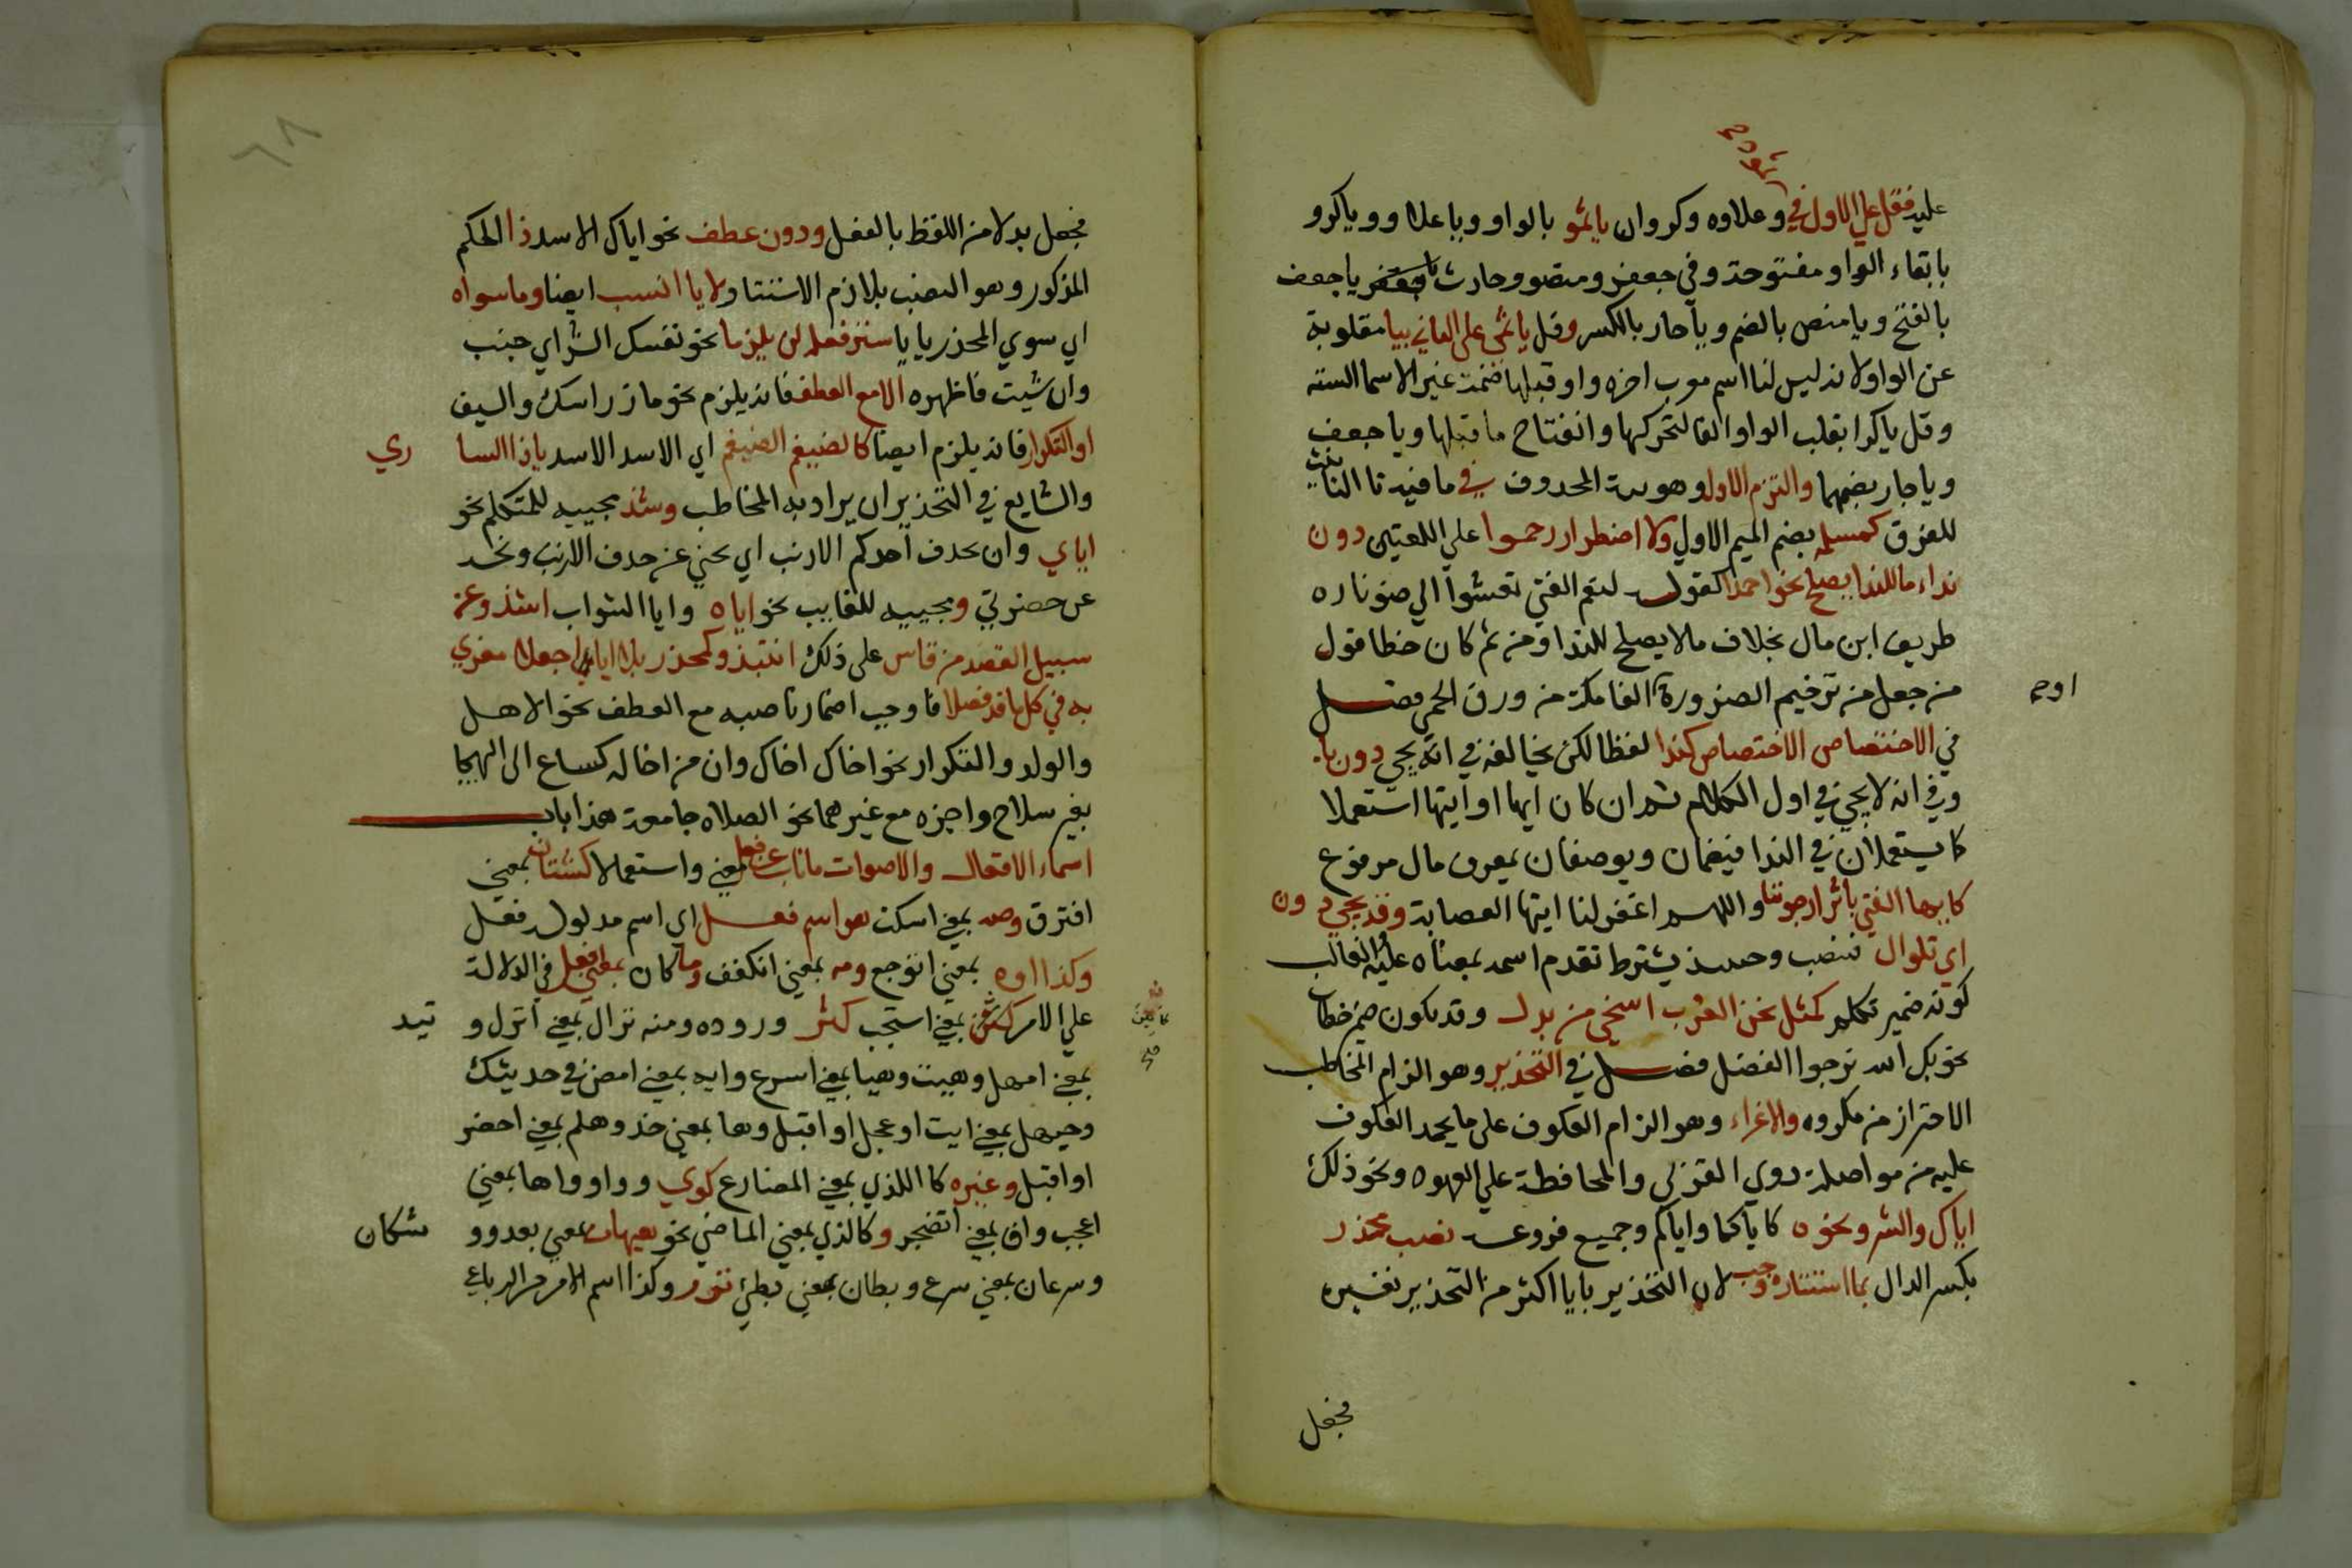 ثمود صح
عليه فقل علي الاول في وعلاوه وكروان يا ثمو بالواو ويا علاو ويا كرو
بابقاء الواو مفتوحة وفي جعفر ومنصور وحارث يا جعف
بالفتح ويا منص بالضم ويا حار بالكسر وقل يا ثمي علي الثاني بيا مقلوبة
عن الواو لانه ليس لنا اسم معرب اخره واو قبلها ضمة غير الاسما الستة
وقل يا كرا بقلب الواو الفا لتحركها وانفتاح ما قبلها ويا جعف
ويا حار بضمهما والتزم الاول وهو نية المحذوف في ما فيه تا التانيث
للفرق كمسلمه بضم الميم الاول ولاضطرار رخموا علي اللغتين دون
نداء ما للندا يصلح نحو احمدا كقوله لنعم الفتي تعشوا الي ضو ناره
طريف ابن مال بخلاف ما لا يصلح للندا ومن ثم كان خطا قول
من جعل من ترخيم الضرورة الفا مكة من ورق الحمي فصل
اوجه
في الاختصاص الاختصاص كندا لفظا لكن يخالفه في انه يجي دون يا
وفي انه لا يجي في اول الكلام ثم ان كان ايها او ايتها استعملا
كما يستعملان في الندا فيضمان ويوصفان بمعرف بال مرفوع
كايها الفتي باثر ارجونيا واللهم اغفر لنا ايتها العصابة وقد يجي دون
اي تلوال فينصب وحينئذ يشترط تقدم اسم بمعناه عليه والغالب
كونه ضمير تكلم كمثل نحن العرب اسخي من بذل وقد يكون ضمير خطاب
نحو بك الله نرجوا الفضل فصل في التحذير وهو الزام المخاطب
الاحتراز من مكروه والاغراء وهو الزام العكوف علي ما يحمد العكوف
عليه من مواصلة ذوي القربي والمحافظة علي العهود ونحو ذلك
اياك والشر ونحوه كاياكما واياكم وجميع فروعه نصب محذر
بكسر الذال بما استتاره وجب لان التحذير بايا اكثر من التحذير بغيره
فجعل
٦٨
فجعل بدلا من اللفظ بالفعل ودون عطف نحو اياك الاسد ذا الحكم
المذكور وهو النصب بلازم الاستتار لايا انسب ايضا وما سواه
اي سوي المحذر بايا ستر فعله لن يلزما نحو نفسك الشر اي جنب
وان شيت فاظهره الا مع العطف فانه يلزم نحو ماز راسك والسيف
او التكرار فانه يلزم ايضا كالضيغم الضيغم اي الاسد الاسد يا ذا الساري
والشايع في التحذير ان يراد به المخاطب وشذ مجييه للمتكلم نحو
اياي وان يحذف احدكم الارنب اي نحني عن حذف الارنب ونحه
عن حضرتي ومجييه للغايب نحو اياه وايا الشواب اشذ وعن
سبيل القصد من قاس علي ذلك انتبذ وكمحذر بلا ايا اجعلا مغري
به في كل ما قد فصلا فاوجب اضمار ناصبه مع العطف نحو الاهل
والولد والتكرار نحو اخاك اخاك وان من اخا له كساع الي الهيجا
بغير سلاح واجزه مع غيرهما نحو الصلاه جامعة هذا باب
اسماء الافعال والاصوات ما ناب عن فعل معني واستعمالا كشتان بمعني
افترق وصه بمعني اسكت هو اسم فعل اي اسم مدلول فعل
وكذا اوه بمعني اتوجع ومه بمعني انكفف وما كان بمعني افعل في الدلالة
علي الامر كامين بمعني استجب كثر وروده ومنه نزال بمعني انزل وتيد
كامين صح
بمعني امهل وهيت وهيا بمعني اسرع وايه بمعني امض في حديثك
وحيهل بمعني ايت او عجل او اقبل وها بمعني خذ وهلم بمعني احضر
او اقبل وغيره كا اللذي بمعني المضارع كوي ووا وواها بمعني
اعجب واف بمعني اتضجر وكالذي بمعني الماضي نحو هيهات بمعني بعد ووشكان
وسرعان بمعني سرع وبطان بمعني بطئ نزر وكذا اسم الامر من الرباعي